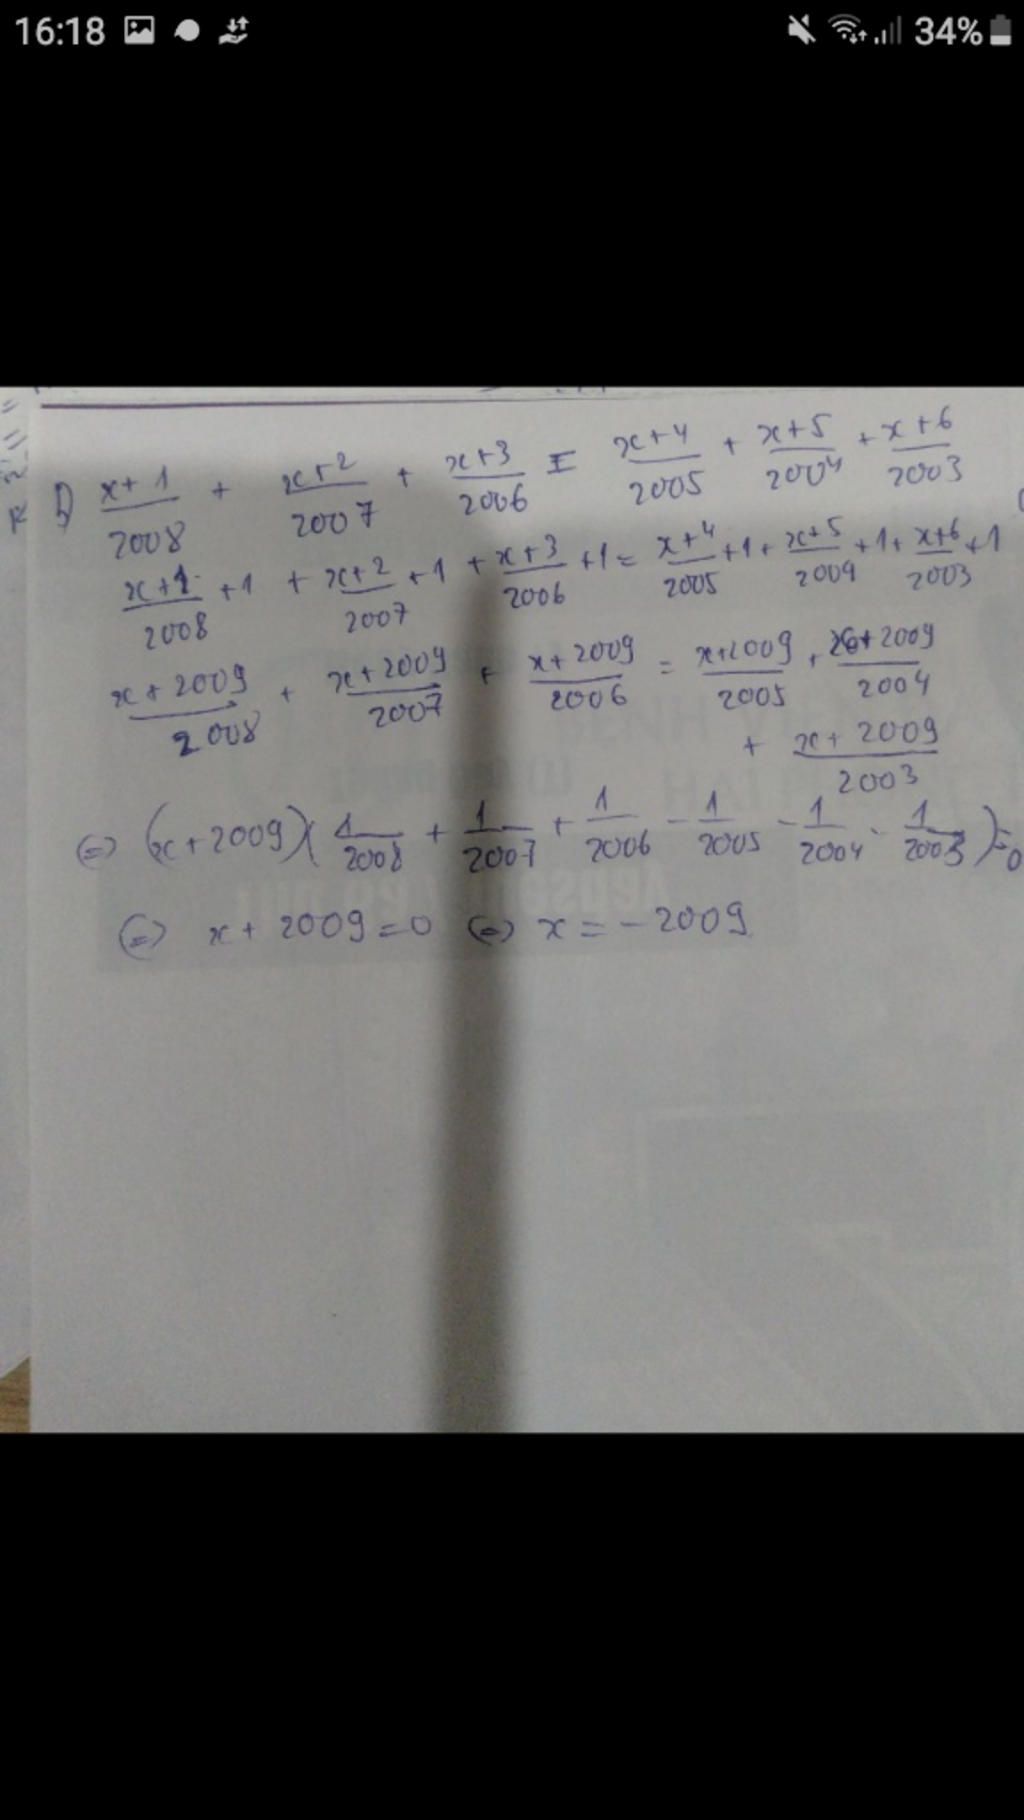 16:18 34%
1) x+1/2008 + x+2/2007 + x+3/2006 = x+4/2005 + x+5/2004 + x+6/2003
x+1/2008 +1 + x+2/2007 +1 + x+3/2006 +1 = x+4/2005 +1+ x+5/2004 +1+ x+6/2003 +1
x+2009/2008 + x+2009/2007 + x+2009/2006 = x+2009/2005 + x+2009/2004
+ x+2009/2003
(=) (x+2009)(1/2008 + 1/2007 + 1/2006 - 1/2005 - 1/2004 - 1/2003)=0
(=) x+2009=0 (=) x=-2009